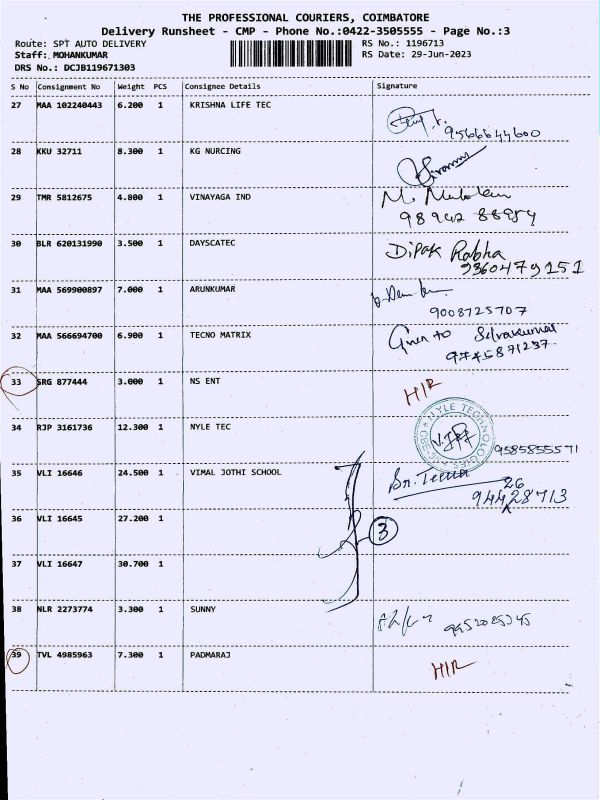 THE PROFESSIONAL COURIERS, COIMBATORE
Delivery Runsheet - CMP - Phone No.:0422-3505555 - Page No.:3
Route: SPT AUTO DELIVERY RS No.: 1196713
Staff: MOHANKUMAR RS Date: 29-Jun-2023
DRS No.: DCJB119671303
S No Consignment No Weight PCS Consignee Details Signature
27 MAA 102240443 6.200 1 KRISHNA LIFE TEC
9566644600
28 KKU 32711 8.300 1 KG NURCING
29 TMR 5812675 4.800 1 VINAYAGA IND
98942 88984
30 BLR 620131990 3.500 1 DAYSCATEC Dipak Rabha
9360479151
31 MAA 569900897 7.000 1 ARUNKUMAR
9008725707
32 MAA 566694700 6.900 1 TECNO MATRIX Given to Selvakumar
9745871237
33 SRG 877444 3.000 1 NS ENT H/R
34 RJP 3161736 12.300 1 NYLE TEC NYLE TECHNOLOGIES
9585855571
35 VLI 16646 24.500 1 VIMAL JOTHI SCHOOL Sr. Teena
26
944 28713
36 VLI 16645 27.200 1 3
37 VLI 16647 30.700 1
38 NLR 2273774 3.300 1 SUNNY
39 TVL 4985963 7.300 1 PADMARAJ H/R